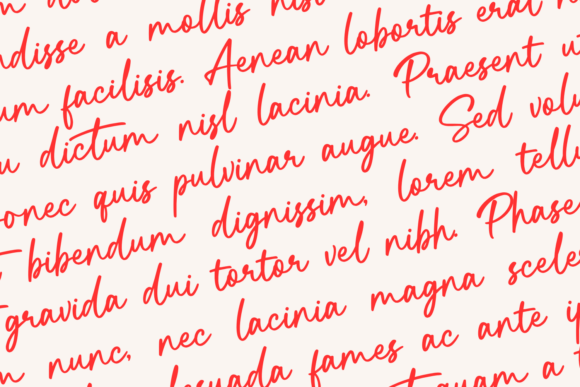 ndisse a mollis nisl
um facilisis. Aenean lobortis erat
u dictum nisl lacinia. Praesent ut
onec quis pulvinar augue. Sed volu
bibendum dignissim, lorem tellu
gravida dui tortor vel nibh. Phase
m nunc, nec lacinia magna sceler
esuada fames ac ante ip
quam a